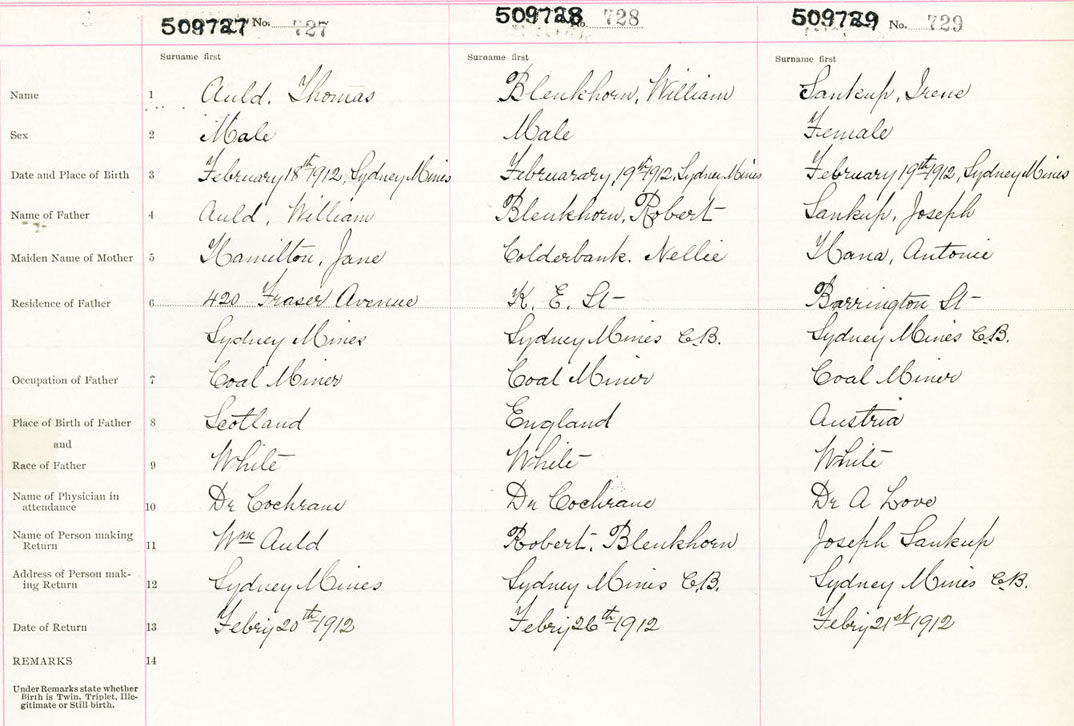 509727 No. 727 509728 No. 728 509729 No. 729
Surname first Surname first Surname first
Name 1 Auld, Thomas Blenkhorn, William Sankup, Irene
Sex 2 Male Male Female
Date and Place of Birth 3 February 18th 1912, Sydney Mines Februarary, 19th 1912, Sydney Mines February 19th 1912, Sydney Mines
Name of Father 4 Auld, William Blenkhorn, Robert Sankup, Joseph
Maiden Name of Mother 5 Hamilton, Jane Colderbank. Nellie Hana, Antonie
Residence of Father 6 420 Fraser Avenue K. E. St Barrington St
Sydney Mines Sydney Mines C.B. Sydney Mines C.B.
Occupation of Father 7 Coal Miner Coal Miner Coal Miner
Place of Birth of Father 8 Scotland England Austria
and
Race of Father 9 White White White
Name of Physician in
attendance 10 Dr Cochrane Dr Cochrane Dr A Love
Name of Person making
Return 11 Wm Auld Robert. Blenkhorn Joseph Sankup
Address of Person mak-
ing Return 12 Sydney Mines Sydney Mines C.B. Sydney Mines C.B.
Date of Return 13 Febriy 20th 1912 Febriy 26th 1912 Febriy 21st 1912
REMARKS 14
Under Remarks state whether
Birth is Twin, Triplet, Ille-
gitimate or Still-birth.